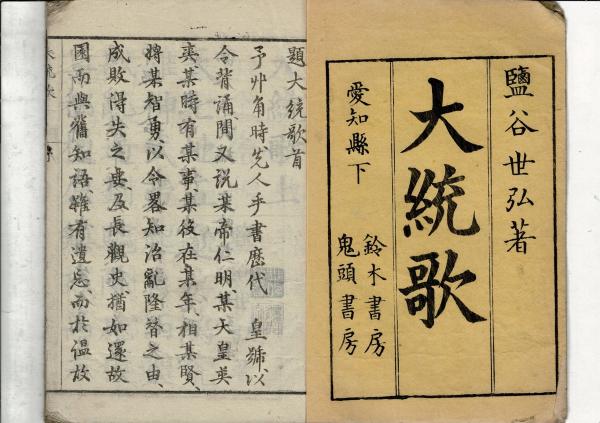 鹽谷世弘著
大統歌
愛知縣下
鈴木書房
鬼頭書房
題大統歌首
予丱角時先人手書歴代　皇號以
令背誦間又説某帝仁明某天皇英
爽某時有某事某役在某年相某賢、
将某智勇、以令畧知治亂隆替之由、
成敗得失之迹、及長觀史、猶如還故
園而與舊知語雖有遺忘、而於温故
大統歌